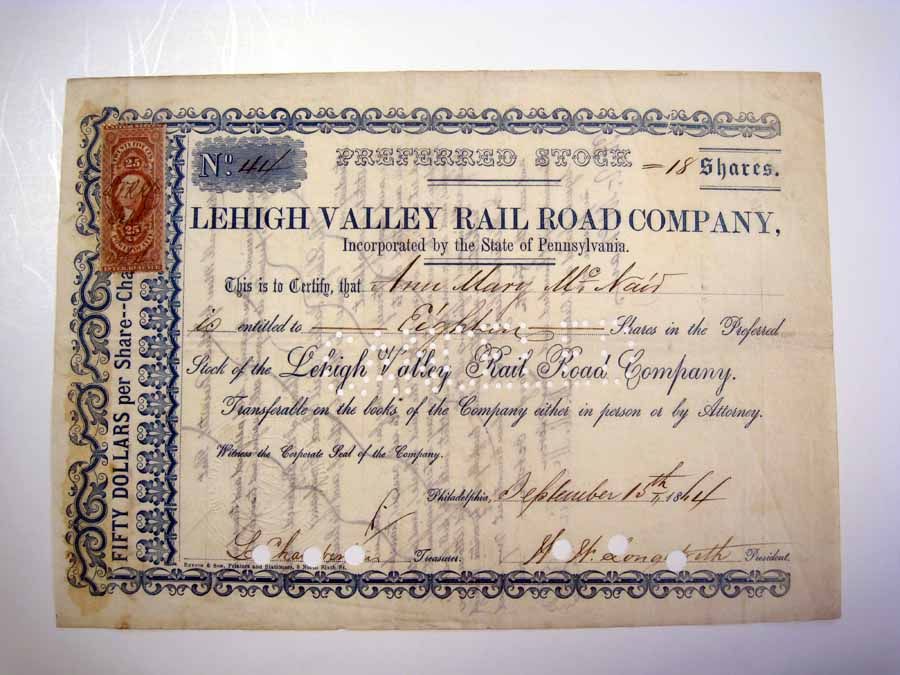 No. 44
PREFERRED STOCK
=18 Shares.
LEHIGH VALLEY RAIL ROAD COMPANY,
Incorporated by the State of Pennsylvania.
This is to Certify, that Ann Mary McNair
is entitled to Eighteen Shares in the Preferred
Stock of the Lehigh Valley Rail Road Company.
Transferable on the books of the Company either in person or by Attorney.
Witness the Corporate Seal of the Company.
Philadelphia, September 15th 1864
Treasurer.
President.
& Son, Printers and Stationers,
FIFTY DOLLARS per Share--Cha
25 25
25 25
INTER. REVENUE